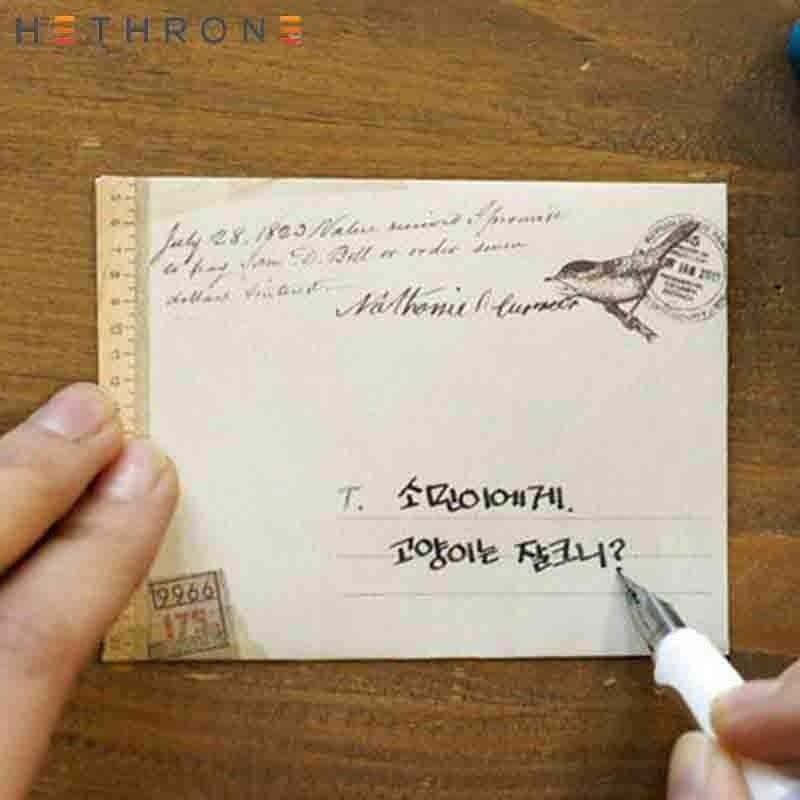 HETHRONE
July 28, 1823 Value received I promise
to pay Sam D. Bell or order seven
dollars
T. 소민이에게.
고양이는 잘크니?
9966
175